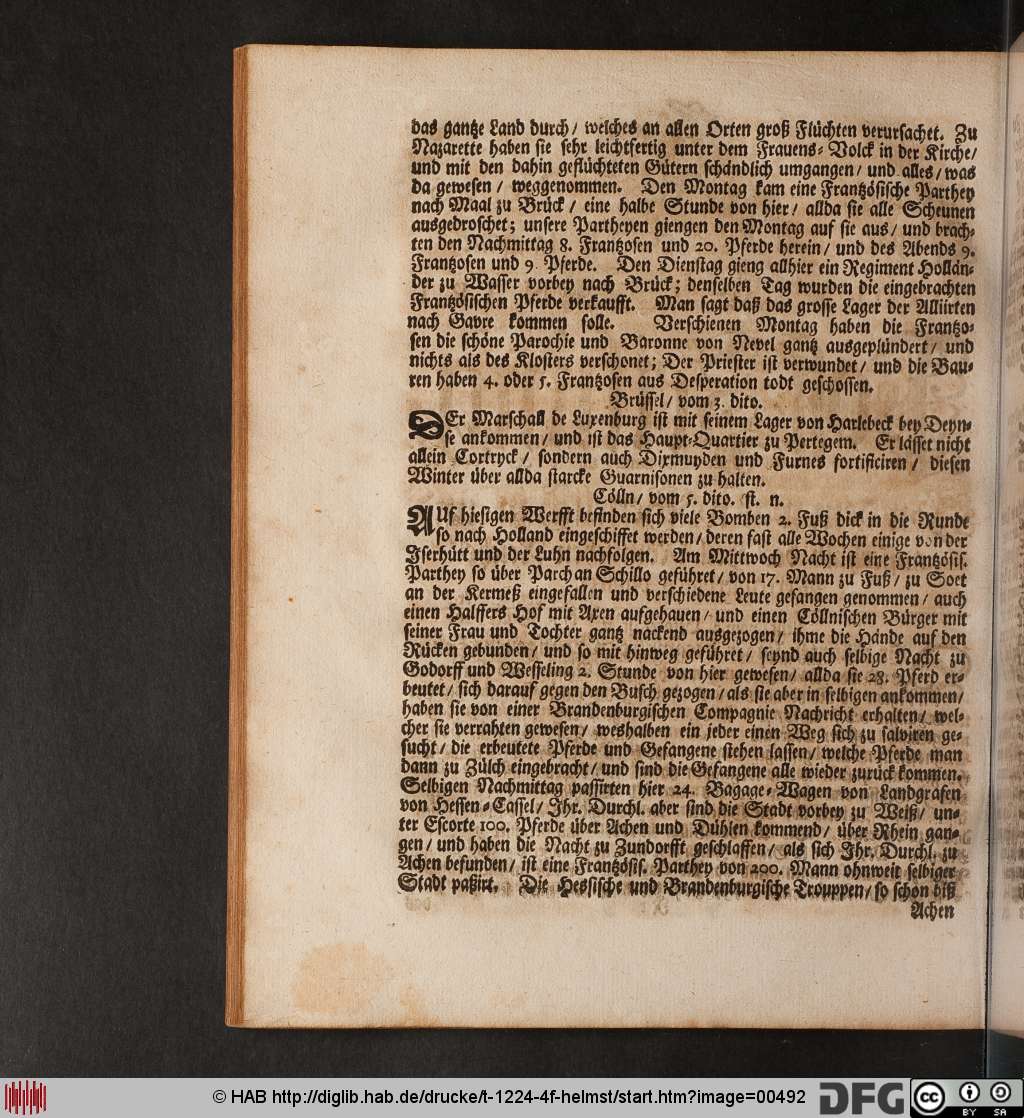 das gantze Land durch/ welches an allen Orten groß Flüchten verursachet. Zu
Nazarette haben sie sehr leichtfertig unter dem Frauens-Volck in der Kirche/
und mit den dahin geflüchteten Gütern schändlich umgangen/ und alles/ was
da gewesen/ weggenommen. Den Montag kam eine Frantzösische Parthey
nach Maal zu Brück/ eine halbe Stunde von hier/ allda sie alle Scheunen
ausgedroschet; unsere Partheyen giengen den Montag auf sie aus/ und brach-
ten den Nachmittag 8. Frantzosen und 20. Pferde herein/ und des Abends 9.
Frantzosen und 9 Pferde. Den Dienstag gieng allhier ein Regiment Hollän-
der zu Wasser vorbey nach Brück; denselben Tag wurden die eingebrachten
Frantzösischen Pferde verkaufft. Man sagt daß das grosse Lager der Alliirten
nach Gavre kommen solle. Verschienen Montag haben die Frantzo-
sen die schöne Parochie und Baronne von Nevel gantz ausgeplündert/ und
nichts als des Klosters verschonet; Der Priester ist verwundet/ und die Bau-
ren haben 4. oder 5. Frantzosen aus Desperation todt geschossen.
Brüssel/ vom 3. dito.
DEr Marschall de Luxenburg ist mit seinem Lager von Harlebeck bey Deyn-
se ankommen/ und ist das Haupt-Quartier zu Pertegem. Er lässet nicht
allein Cortryck/ sondern auch Dixmuyden und Furnes fortificiren/ diesen
Winter über allda starcke Guarnisonen zu halten.
Cölln/ vom 5. dito. st. n.
AUf hiesigen Werfft befinden sich viele Bomben 2. Fuß dick in die Runde
so nach Holland eingeschiffet werden/ deren fast alle Wochen einige von der
Iserhütt und der Luhn nachfolgen. Am Mittwoch Nacht ist eine Frantzösis.
Parthey so über Parch an Schillo geführet/ von 17. Mann zu Fuß/ zu Soet
an der Kermeß eingefallen und verschiedene Leute gefangen genommen/ auch
einen Halffers Hof mit Axen aufgehauen/ und einen Cöllnischen Bürger mit
seiner Frau und Tochter gantz nackend ausgezogen/ ihme die Hände auf den
Rücken gebunden/ und so mit hinweg geführet/ seynd auch selbige Nacht zu
Godorff und Wesseling 2. Stunde von hier gewesen/ allda sie 28. Pferd er-
beutet/ sich darauf gegen den Busch gezogen/ als sie aber in selbigen ankommen/
haben sie von einer Brandenburgischen Compagnie Nachricht erhalten/ wel-
cher sie verrahten gewesen/ weshalben ein jeder einen Weg sich zu salviren ge-
sucht/ die erbeutete Pferde und Gefangene stehen lassen/ welche Pferde man
dann zu Zülch eingebracht/ und sind die Gefangene alle wieder zurück kommen.
Selbigen Nachmittag passirten hier 24. Bagage-Wagen von Landgrafen
von Hessen-Cassel/ Ihr. Durchl. aber sind die Stadt vorbey zu Weiß/ un-
ter Escorte 100. Pferde über Achen und Dühlen kommend/ über Rhein gan-
gen/ und haben die Nacht zu Zundorfft geschlaffen/ als sich Ihr. Durchl. zu
Achen befunden/ ist eine Frantzösis. Parthey von 200. Mann ohnweit selbiger
Stadt paßirt. Die Hessische und Brandenburgische Trouppen/ so schon biß
Achen
© HAB http://diglib.hab.de/drucke/t-1224-4f-helmst/start.htm?image=00492
DFG
cc BY SA